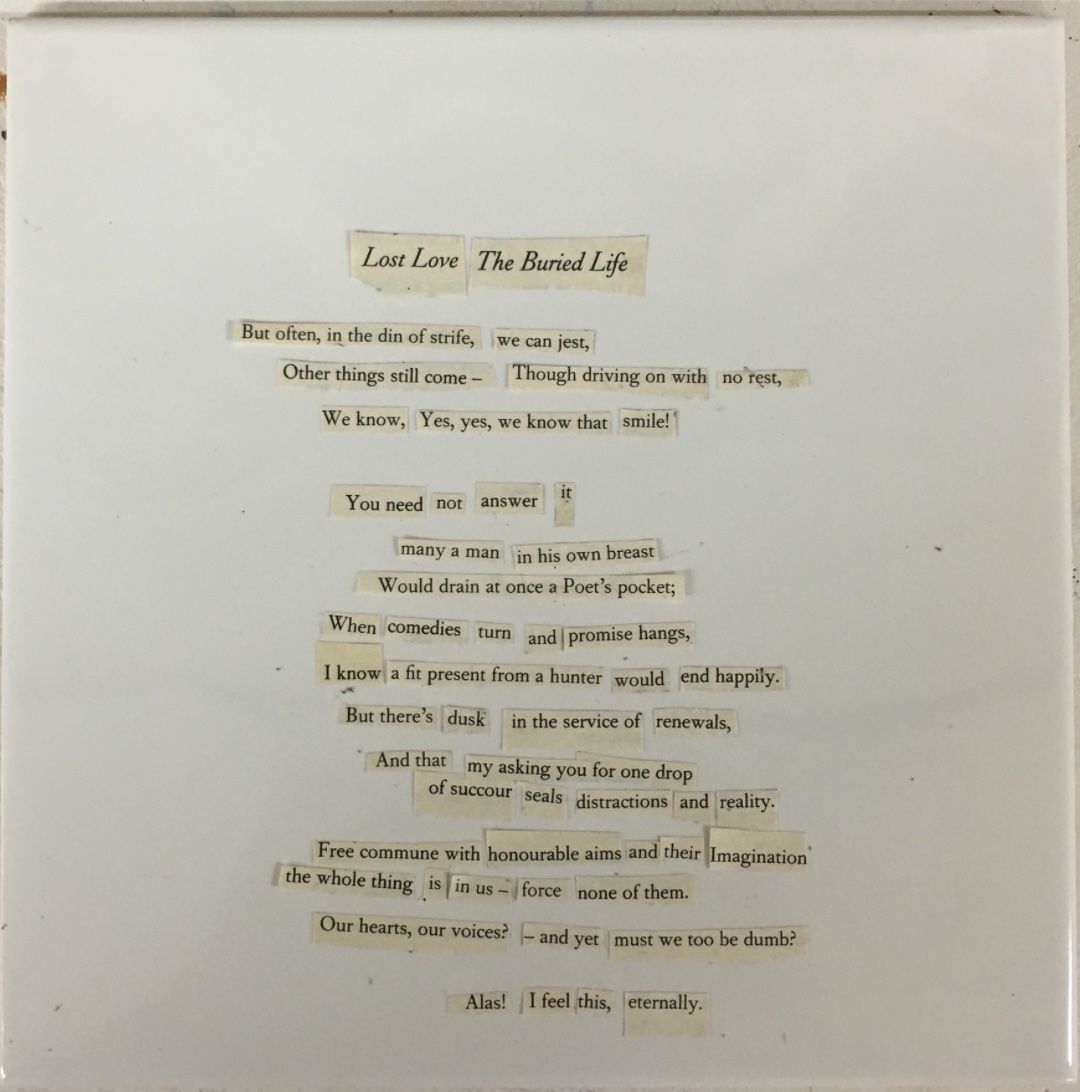 Lost Love The Buried Life
But often, in the din of strife, we can jest,
Other things still come – Though driving on with no rest,
We know, Yes, yes, we know that smile!'
You need not answer it
many a man in his own breast
Would drain at once a Poet's pocket;
When comedies turn and promise hangs,
I know a fit present from a hunter would end happily.
But there's dusk in the service of renewals,
And that my asking you for one drop
of succour seals distractions and reality.
Free commune with honourable aims and their Imagination
the whole thing is in us – force none of them.
Our hearts, our voices? – and yet must we too be dumb?
Alas! I feel this, eternally.